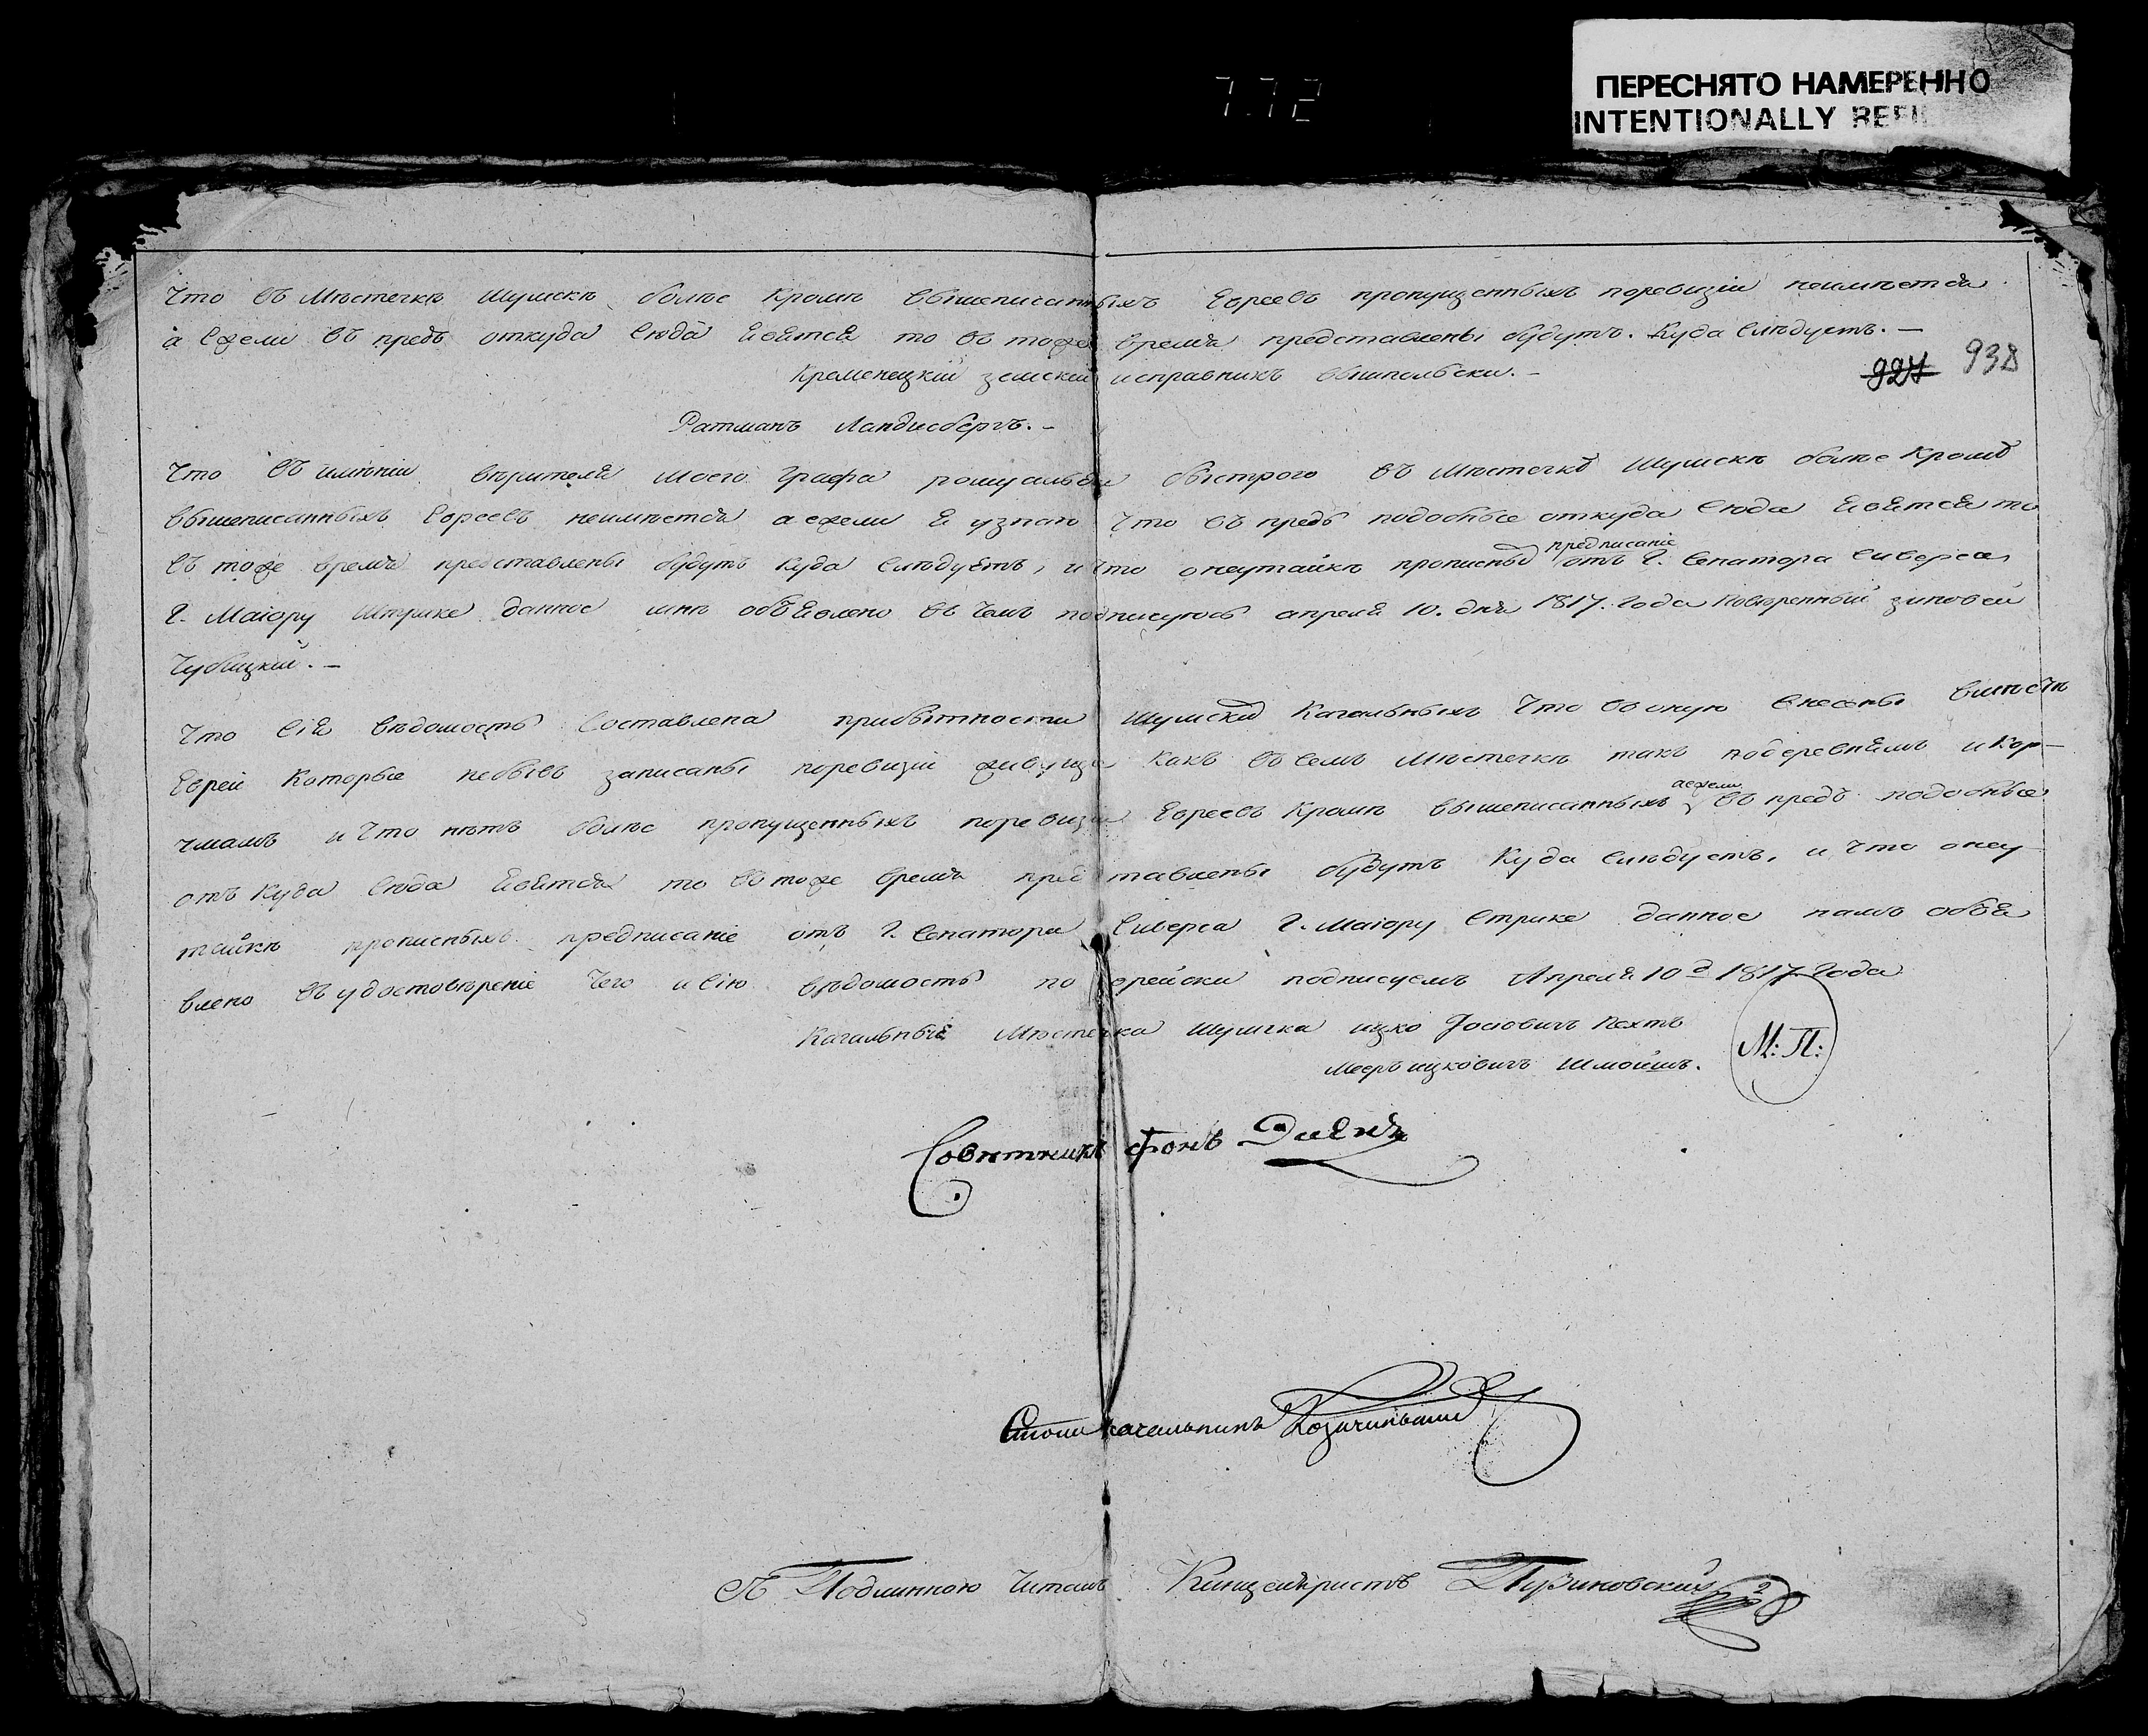 772
ПЕРЕСНЯТО НАМЕРЕННО
INTENTIONALLY REFI
Что въ Мѣстечкѣ Шумскѣ болѣе Кромѣ вышеписанныхъ Евреевъ пропущенныхъ поревизіи неимѣется
а Ежели въ предь откуда Сюда Явятся то въ тоже время представлены будутъ. Куда Слѣдуетъ. —
927 938
Кременецкій земскій исправникъ
Ратманъ Ландисбергъ. —
Что въ имѣніи вѣрителя моего Графа ромуальда быстрого въ Мѣстечкѣ Шумскѣ болѣе Кромѣ
вышеписанныхъ Евреевъ неимѣется а ежели Я узнаю Что въ предь подобные откуда Сюда Явятся то
въ тоже время представлены будутъ Куда Слѣдуетъ, и Что онеутайкѣ прописныхъ предписаніе отъ Г. Сенатора Сиверса
Г. Маіору Штрике данное мнѣ объявлено въ Чемъ подписуюсь апреля 10. дня 1817. Года Повѣренный зиновей
Чубицкий. —
Что Сія вѣдомость Составлена прибытности Шумский Кагальныхъ Что во оную Внесены
Евреи Которые небывъ записаны поревизіи живущіе Какъ въ Семъ Мѣстечкѣ такъ подеревнямъ и Кор-
чмамъ и Что нѣтъ болѣе пропущенныхъ поревизіи Евреевъ Кромѣ вышеписанныхъ аежели въ предь подобные
отъ Куда Сюда Явятся то въ тоже время представлены будутъ Куда Слѣдуетъ, и Что онеу
тайкѣ прописныхъ предписаніе отъ Г. Сенатора Сиверса Г. Маіору Стрике данное намъ объя
влено въ удостовѣреніе Чего и Сію вѣдомость по Еврейски подписуемъ Апреля 10 д 1817 Года
Кагальные Мѣстечка Шумска ицко Іосіовичъ
Мееръ ицковичъ Шмойшъ.
М: П:
Совѣтникъ Фонъ
Столоначальникъ
Съ Подлинною Читалъ Канцеляристъ